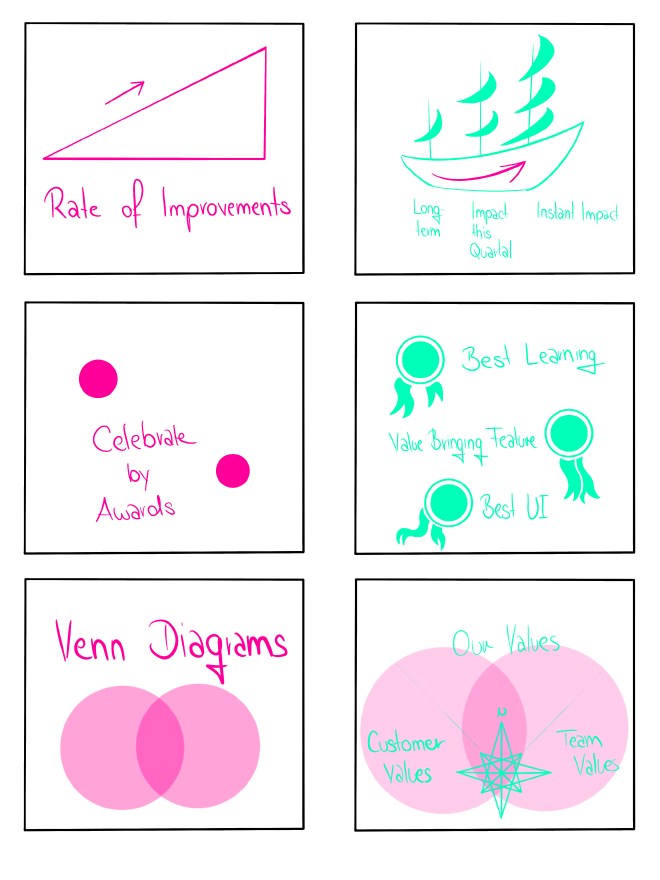 Rate of Improvements
Long-
term
Impact
this
Quartal
Instant Impact
Celebrate
by
Awards
Best Learning
Value Bringing Feature
Best UI
Venn Diagrams
Our Values
N
Customer
Values
Team
Values